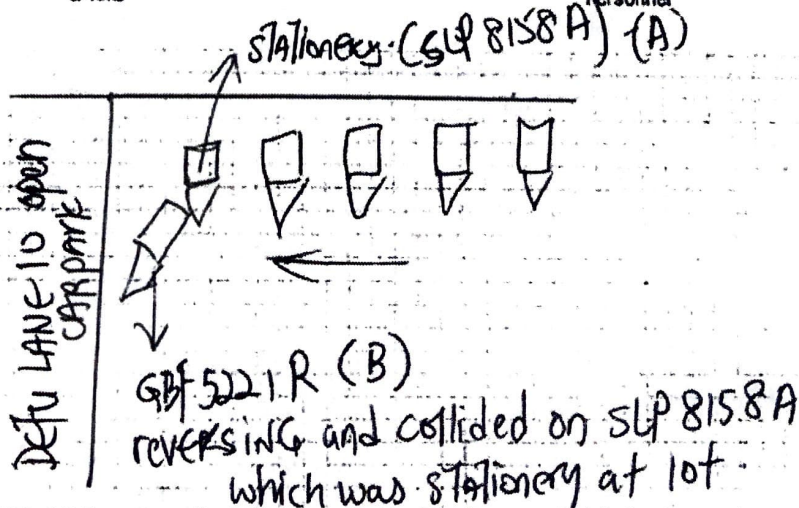 Personnel
stationery (SLP 8158 A) (A)
DEFU LANE 10 open
CARPARK
GBF 5221.R (B)
reversing and collided on SLP 8158A
which was stationery at lot.